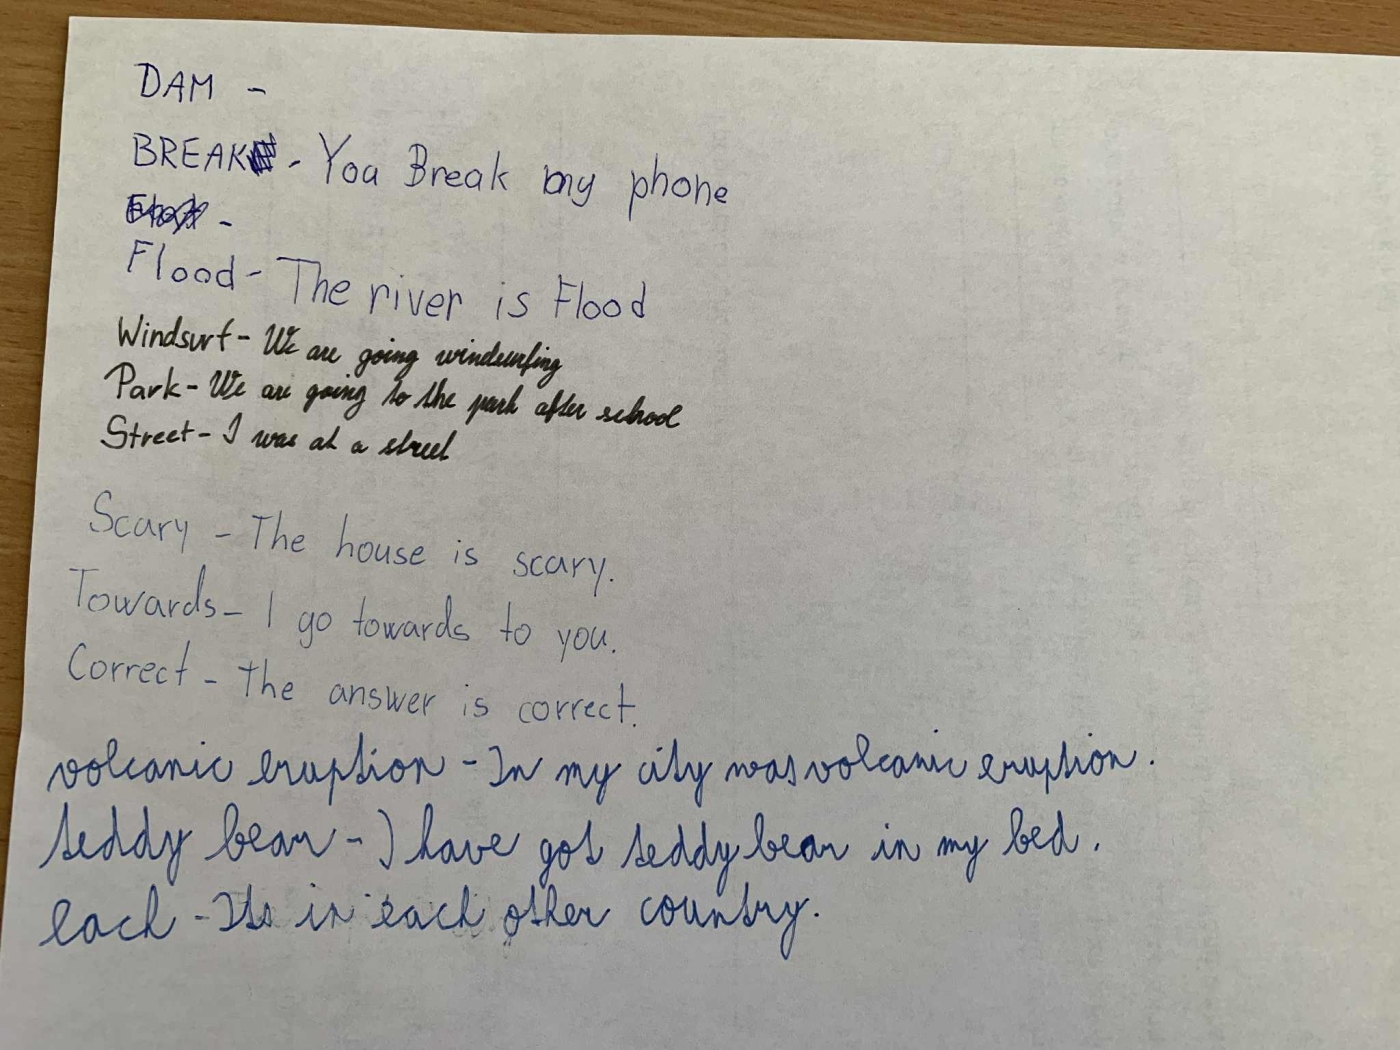 DAM -
BREAK - You Break my phone
-
Flood - The river is Flood
Windsurf - We are going windsurfing
Park - We are going to the park after school
Street - I was at a street
Scary - The house is scary.
Towards - I go towards to you.
Correct - The answer is correct.
volcanic eruption - In my city was volcanic eruption.
teddy bear - I have got teddy bear in my bed.
each - Its in each other country.